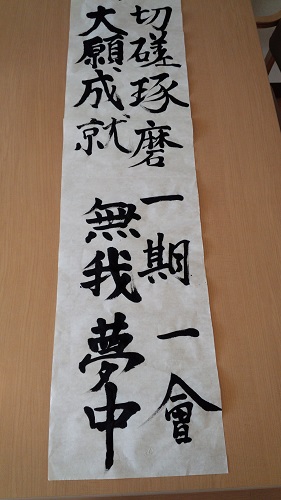 切磋琢磨 一期一會
大願成就 無我夢中